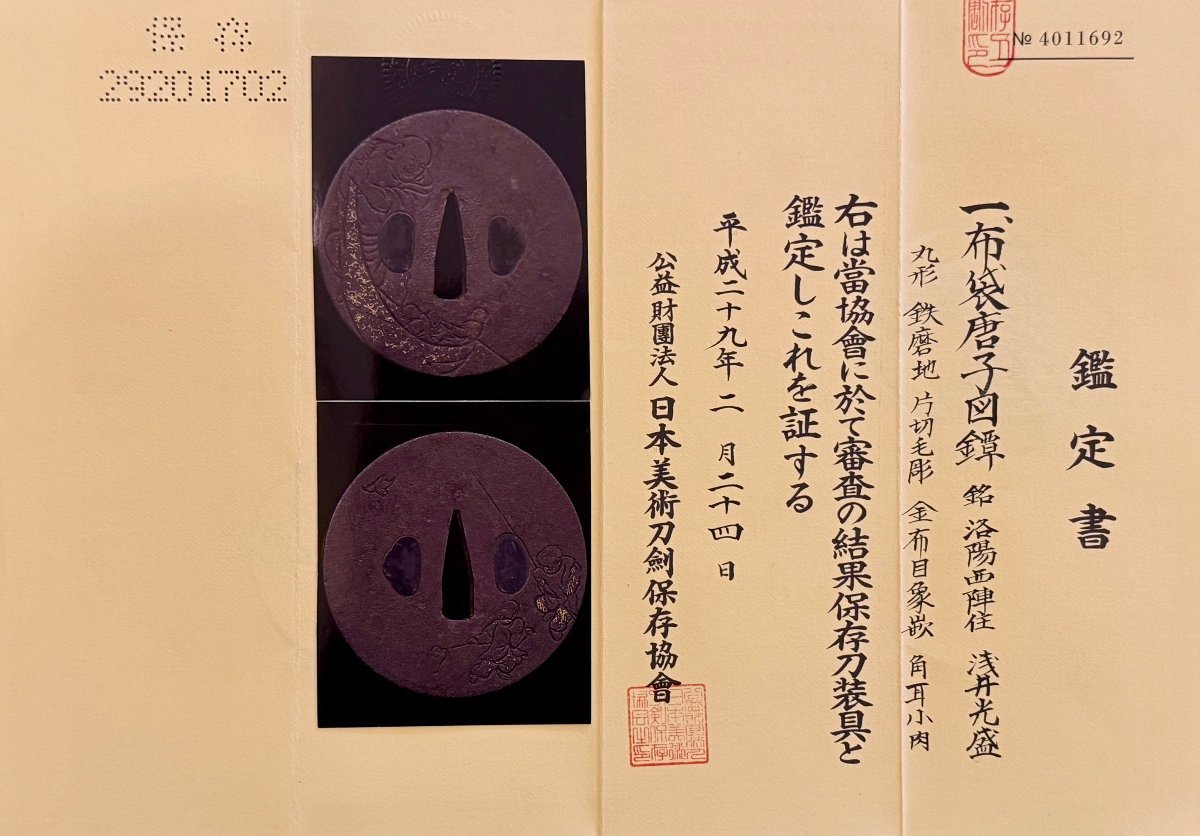 № 4011692
鑑定書
一、布袋唐子図鐔 銘 洛陽西陣住 浅井光盛
丸形 鉄磨地 片切毛彫 金布目象嵌 角耳小肉
右は當協會に於て審査の結果保存刀装具と
鑑定しこれを証する
平成二十九年 二 月二十四日
公益財團法人 日本美術刀劍保存協會
保存
29201702